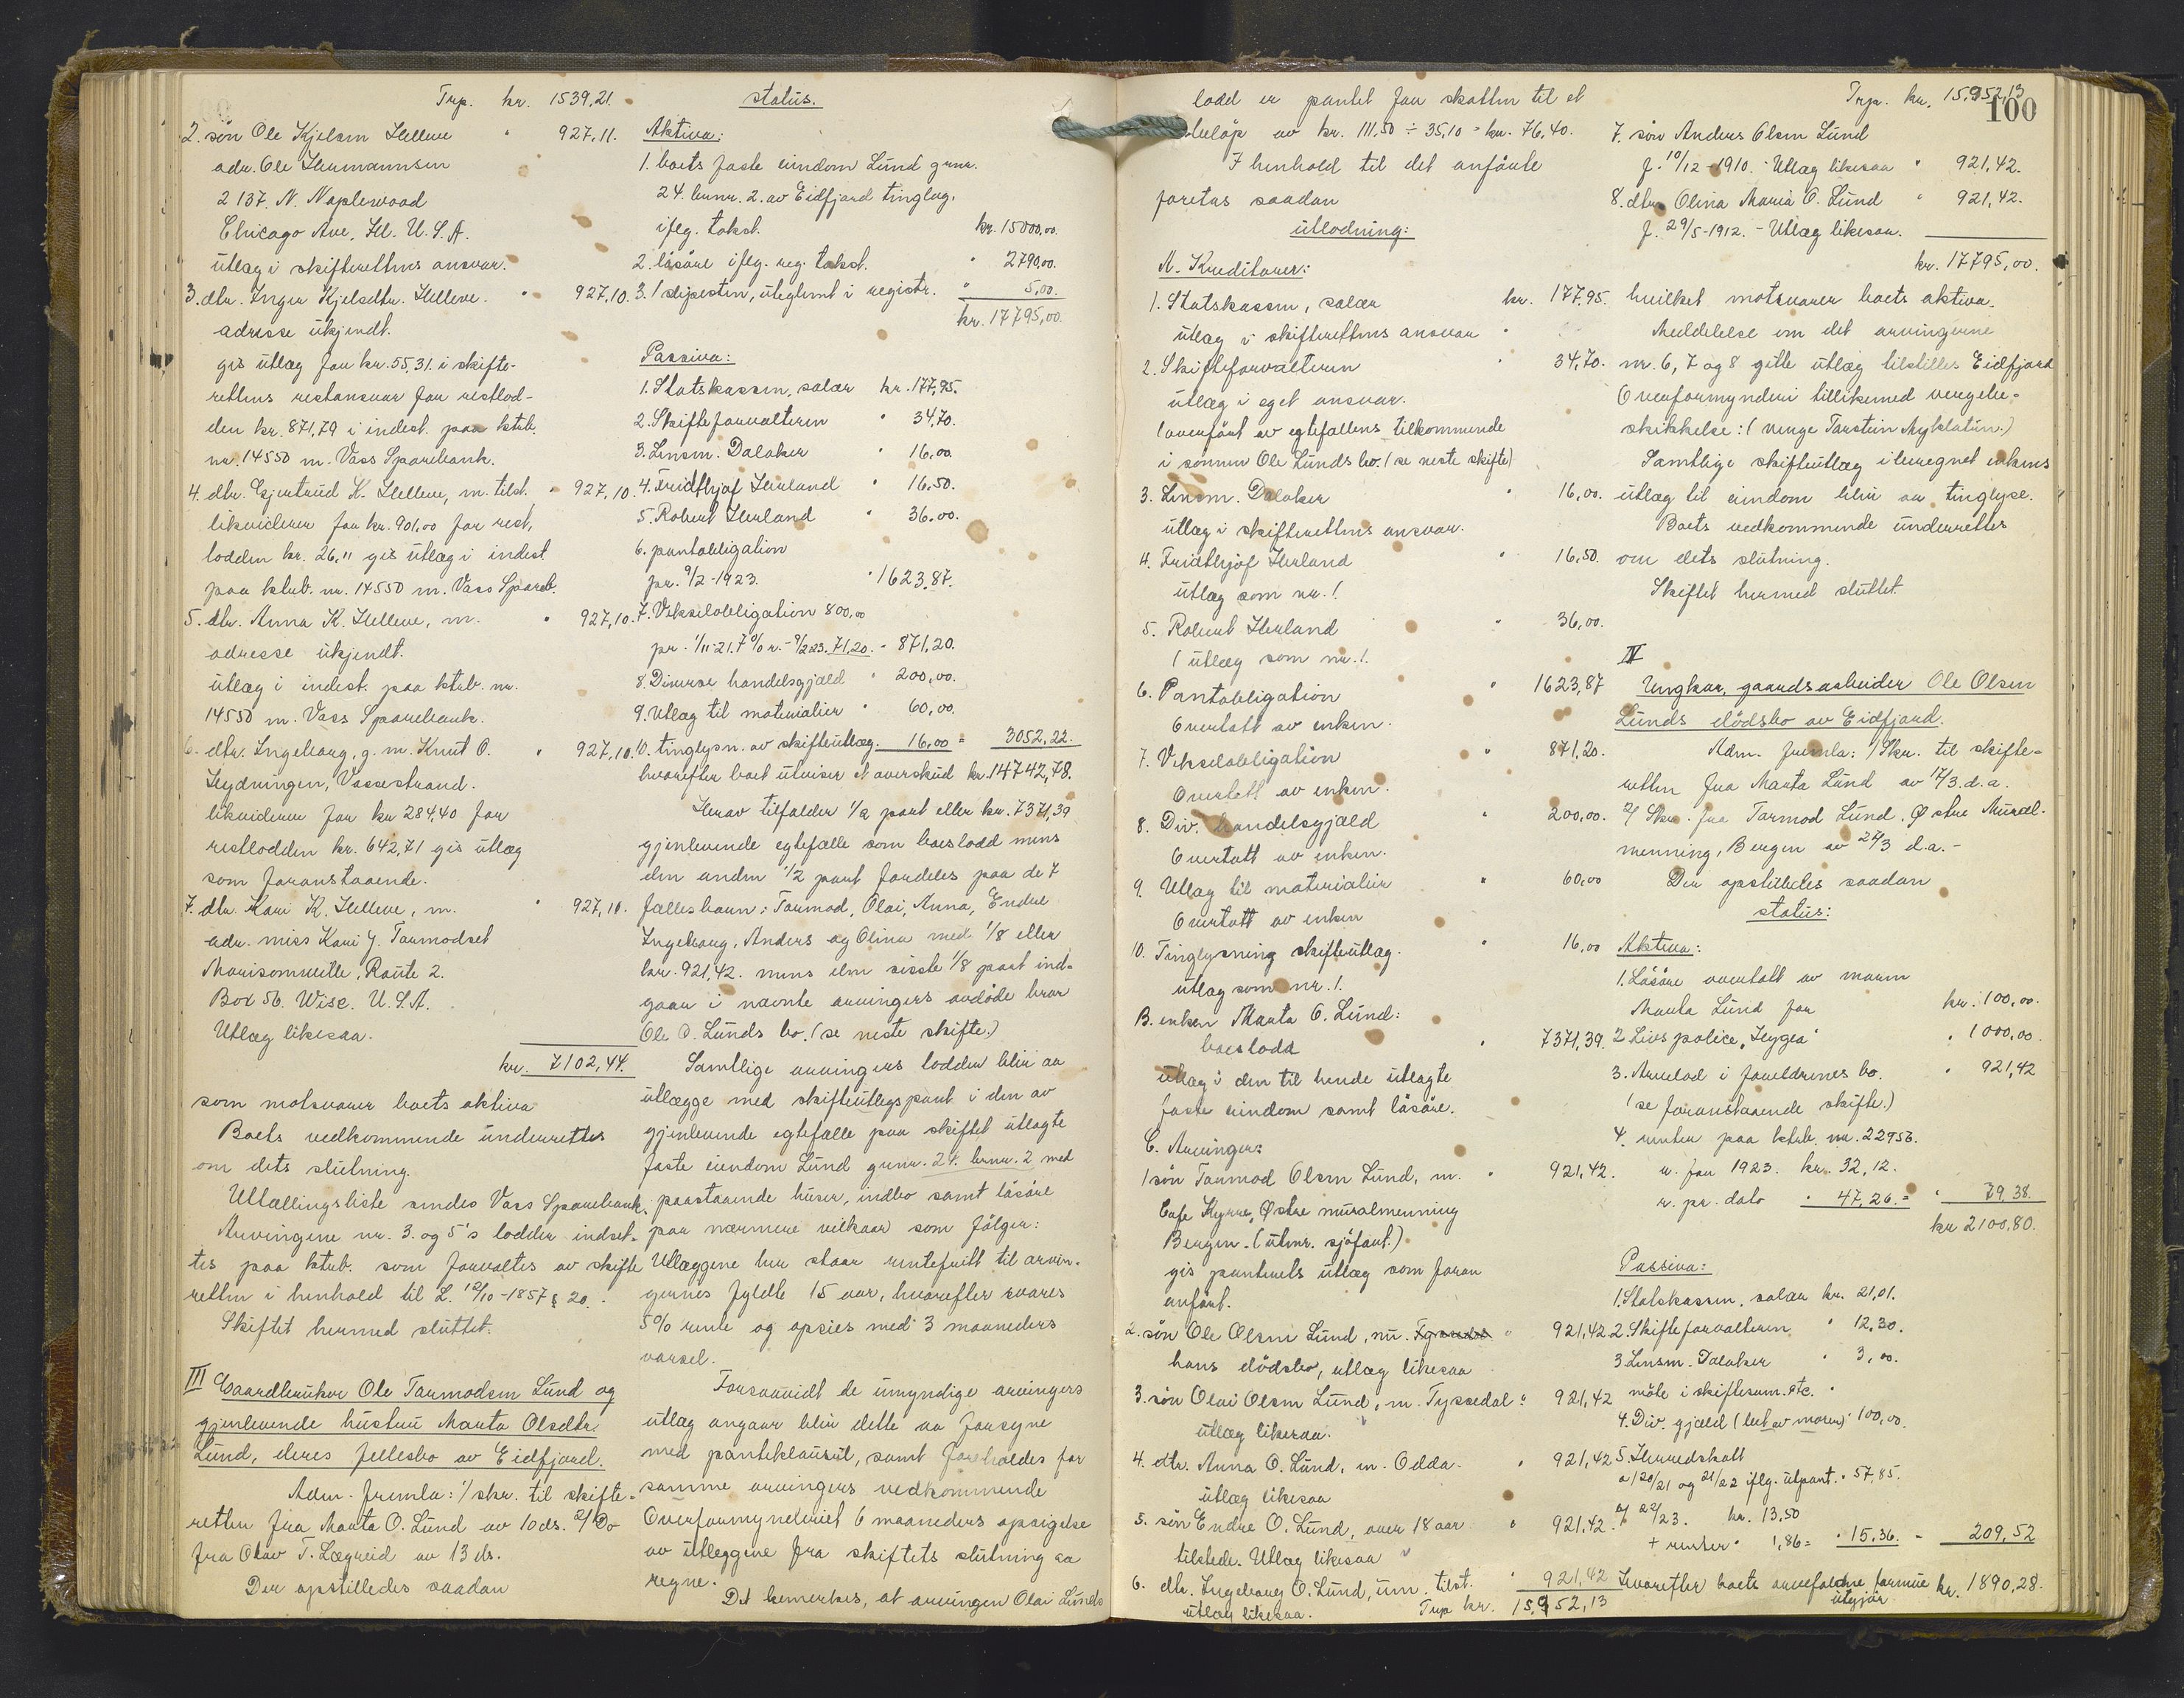 Trp. kr. 1539,21.
2. søn Ole Kjelsen Helleve " 927,11.
adr. Ole Hermannsen
2137. N. Maplewood
Chicago Ave, Ill. U.S.A.
utlæg i skifterettens ansvar.
3. dtr. Inger Kjelsdtr. Helleve. " 927,10.
adresse ukjendt.
gis utlæg for kr. 55,31. i skifte-
rettens restansvar for restlod-
den kr. 871,79 i indest. paa ktrb.
nr. 14550 m. Voss Sparebank.
4. dtr. Gjertrud K. Helleve, m. tilst. " 927,10.
likviderer for kr. 901,00 for rest,
lodden kr. 26," gis utlæg i indest
paa ktrb. nr. 14550 m. Voss Spareb.
5. dtr. Anna K. Helleve, m. " 927,10.
adresse ukjendt.
utlæg i indest. paa ktrb. nr.
14550 m. Voss Sparebank.
6. dtr. Ingeborg, g. m. Knut O. " 927,10.
Hydningen, Vossestrand.
likviderer for kr 284,40 for
restlodden kr. 642,71 gis utlæg
som foranstaaende.
7. dtr. Kari K. Helleve, m. " 927,10.
adr. miss Kari G. Tarmodset
Morisonville, Route 2.
Box 56. Wisc. U.S.A.
Utlæg likesaa.
kr. 7102,44.
som motsvarer boets aktiva
Boets vedkommende underrettes
om dets slutning.
Uttællingsliste sendes Voss Sparebank.
Arvingene nr. 3. og 5's lodder indset-
tes paa ktrb. som forvaltes av skifte
retten i henhold til L. 12/10-1857 § 20.
Skiftet hermed sluttet.
III Gaardbruker Ole Tarmodsen Lund og
gjenlevende hustru Marta Olsdtr.
Lund, deres fellesbo av Eidfjord.
Adm. fremla: 1/ skr. til skifte-
retten fra Marta O. Lund av 10 ds. 2/ Do
fra Olav T. Lægreid av 13 ds.
Der opstilledes saadan
status.
Aktiva:
1. boets faste eiendom Lund gnr.
24. brnr. 2. av Eidfjord tinglag.
iflg. takst. kr. 15000,00.
2. løsøre iflg. reg. takst. " 2790,00.
3. 1 slipesten, uteglemt i registr. " 5,00.
kr. 17795,00.
Passiva:
1. Statskassen, salær kr. 177,95.
2. Skifteforvalteren " 34,70.
3. Lensm. Dalaker " 16,00
4. Fridthjof Herland " 16,50.
5. Robert Herland " 36,00.
6. pantobligation
pr. 9/2-1923. " 1623,87.
7. Vekselobligation 800,00
pr. 1/11-21. 7% r. - 9/2 23. 71,20. - 871,20.
8. Diverse handelsgjæld " 200,00.
9. Utlæg til materialier " 60,00.
10. tinglysn. av skifteutlæg. 16,00 = 3052,22.
hvorefter boet utviser et overskud kr. 14742,78.
Herav tilfalder 1/2 part eller kr. 7371,39
gjenlevende egtefælle som boeslodd mens
den anden 1/2 part fordeles paa de 7
fællesbarn: Tormod, Olai, Anna, Endre
Ingeborg, Anders og Olina med 1/8 eller
kr. 921,42. mens den sisste 1/8 part ind-
gaar i nævnte arvingers avdøde bror
Ole O. Lunds bo. (se neste skifte.)
Samtlige arvingers lodder blir aa
utlægge med skifteutlægspant i den av
gjenlevende egtefælle paa skiftet utlagte
faste eiendom Lund gnr. 24. brnr. 2 med
paastaaende huser, indbo samt løsøre
paa nærmere vilkaar som følger:
Utlæggene her staar rentefritt til arvin-
gernes fyldte 15 aar, hvorefter svares
5% rente og opsies med 3 maaneders
varsel.
Forsaavidt de umyndige arvingers
utlæg angaar blir dette aa forsyne
med panteklausul, samt forbeholdes for
samme arvingers vedkommende
Overformynderiet 6 maaneders opsigelse
av utleggene fra skiftets slutning aa
regne.
Det bemerkes, at arvingen Olai Lunds
100
lodd er pantet for skatten til et
beløp av kr. 111,50 ÷ 35,10 = kr. 76,40.
I henhold til det anførte
foretas saadan
utlodning:
A. Kreditorer:
1. Statskassen, salær kr. 177,95.
utlæg i skifterettens ansvar "
2. Skifteforvalteren " 34,70.
utlæg i eget ansvar.
(overført av egtefællens tilkommende
i sønnen Ole Lunds bo. (se neste skifte)
3. Lensm. Dalaker " 16,00.
utlæg i skifterettens ansvar.
4. Fridthjof Herland " 16,50.
utlæg som nr. 1.
5. Robert Herland " 36,00.
(utlæg som nr. 1.
6. Pantobligation " 1623,87
Overtatt av enken.
7. Vekselobligation " 871,20.
Overtatt av enken.
8. Div. handelsgjæld " 200,00.
Overtatt av enken.
9. Utlæg til materialier " 60,00
Overtatt av enken
10. Tinglysning skifteutlæg. " 16,00
utlæg som nr. 1.
B. enken Marta O. Lund:
boeslodd " 7371,39.
utlæg i den til hende utlagte
faste eiendom samt løsøre.
C. Arvinger:
1 søn Tarmod Olsen Lund, m. " 921,42.
Cafe Kyrre, Østre muralmenning
Bergen. (utenr. sjøfart.)
gis panterets utlæg som foran
anført.
2. søn Ole Olsen Lund, nu. " 921,42.
hans dødsbo, utlæg likesaa
3. søn Olai Olsen Lund, m. Tyssedal " 921,42
utlæg likesaa.
4. dtr. Anna O. Lund, m. Odda. " 921,42
utlæg likesaa
5. søn Endre O. Lund, over 18 aar " 921,42.
tilstede. Utlæg likesaa
6. dtr. Ingeborg O. Lund, um. tilst. " 921,42
utlæg likesaa. Trp kr. 15,952,13
Trp. kr. 15,952,13
7. søn Anders Olsen Lund
f. 10/12-1910. Utlæg likesaa " 921,42.
8. dtr. Olina Maria O. Lund " 921,42.
f. 29/5-1912. - Utlæg likesaa.
kr. 17795,00.
hvilket motsvarer boets aktiva.
Meddelelse om det arvingerne
nr. 6, 7 og 8 gitte utlæg tilstilles Eidfjord
Overformynderi tillikemed verge-
skikkelse: (verge Torstein Myklatun.)
Samtlige skifteutlæg iberegnet enkens
utlæg til eiendom blir aa tinglyse.
Boets vedkommende underrettes
om dets slutning.
Skiftet hermed sluttet.
IV
Ungkar, gaardsarbeider Ole Olsen
Lunds dødsbo av Eidfjord.
Adm. fremla: 1/ Skr. til skifte-
retten fra Marta Lund av 17/3. d.a.
2/ Skr. fra Tarmod Lund, Østre Mural-
menning, Bergen av 24/3 d.a. -
Der opstilledes saadan
status:
Aktiva:
1. Løsøre overtatt av moren
Marta Lund for kr. 100,00.
2 Livspolice "Hygea" " 1000,00.
3. Arvelod i foreldrenes bo. " 921,42
(se foranstaaende skifte.)
4. renter paa ktrb. nr. 22956.
r. for 1923. kr. 32,12.
r. pr. dato " 47,26. = " 79,38.
kr 2100,80.
Passiva:
1. Statskassen, salær kr. 21,01.
2. Skifteforvalteren " 12,30.
3. Lensm. Dalaker " 3,00.
møte i skiftesam. etc. "
4. Div. gjæld (bet av moren) 100,00.
5. Herredskatt
a/ 20/21 og 21/22 iflg. utpant. " 57,85.
b/ 22/23. kr. 13,50
+ renter " 1,86 = " 15,36. - 209,52
hvorefter boets arvefaldne formue utgjør kr. 1890,28.